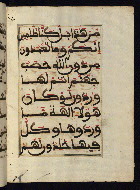 من هذا بل كنا ظلمين
إنكم وما تعبدون
من دون الله حصب
جهنم أنتم لها
وردون لو كان
هؤلاء الهة ما
وردوها وكل
فيها خلدون لهم